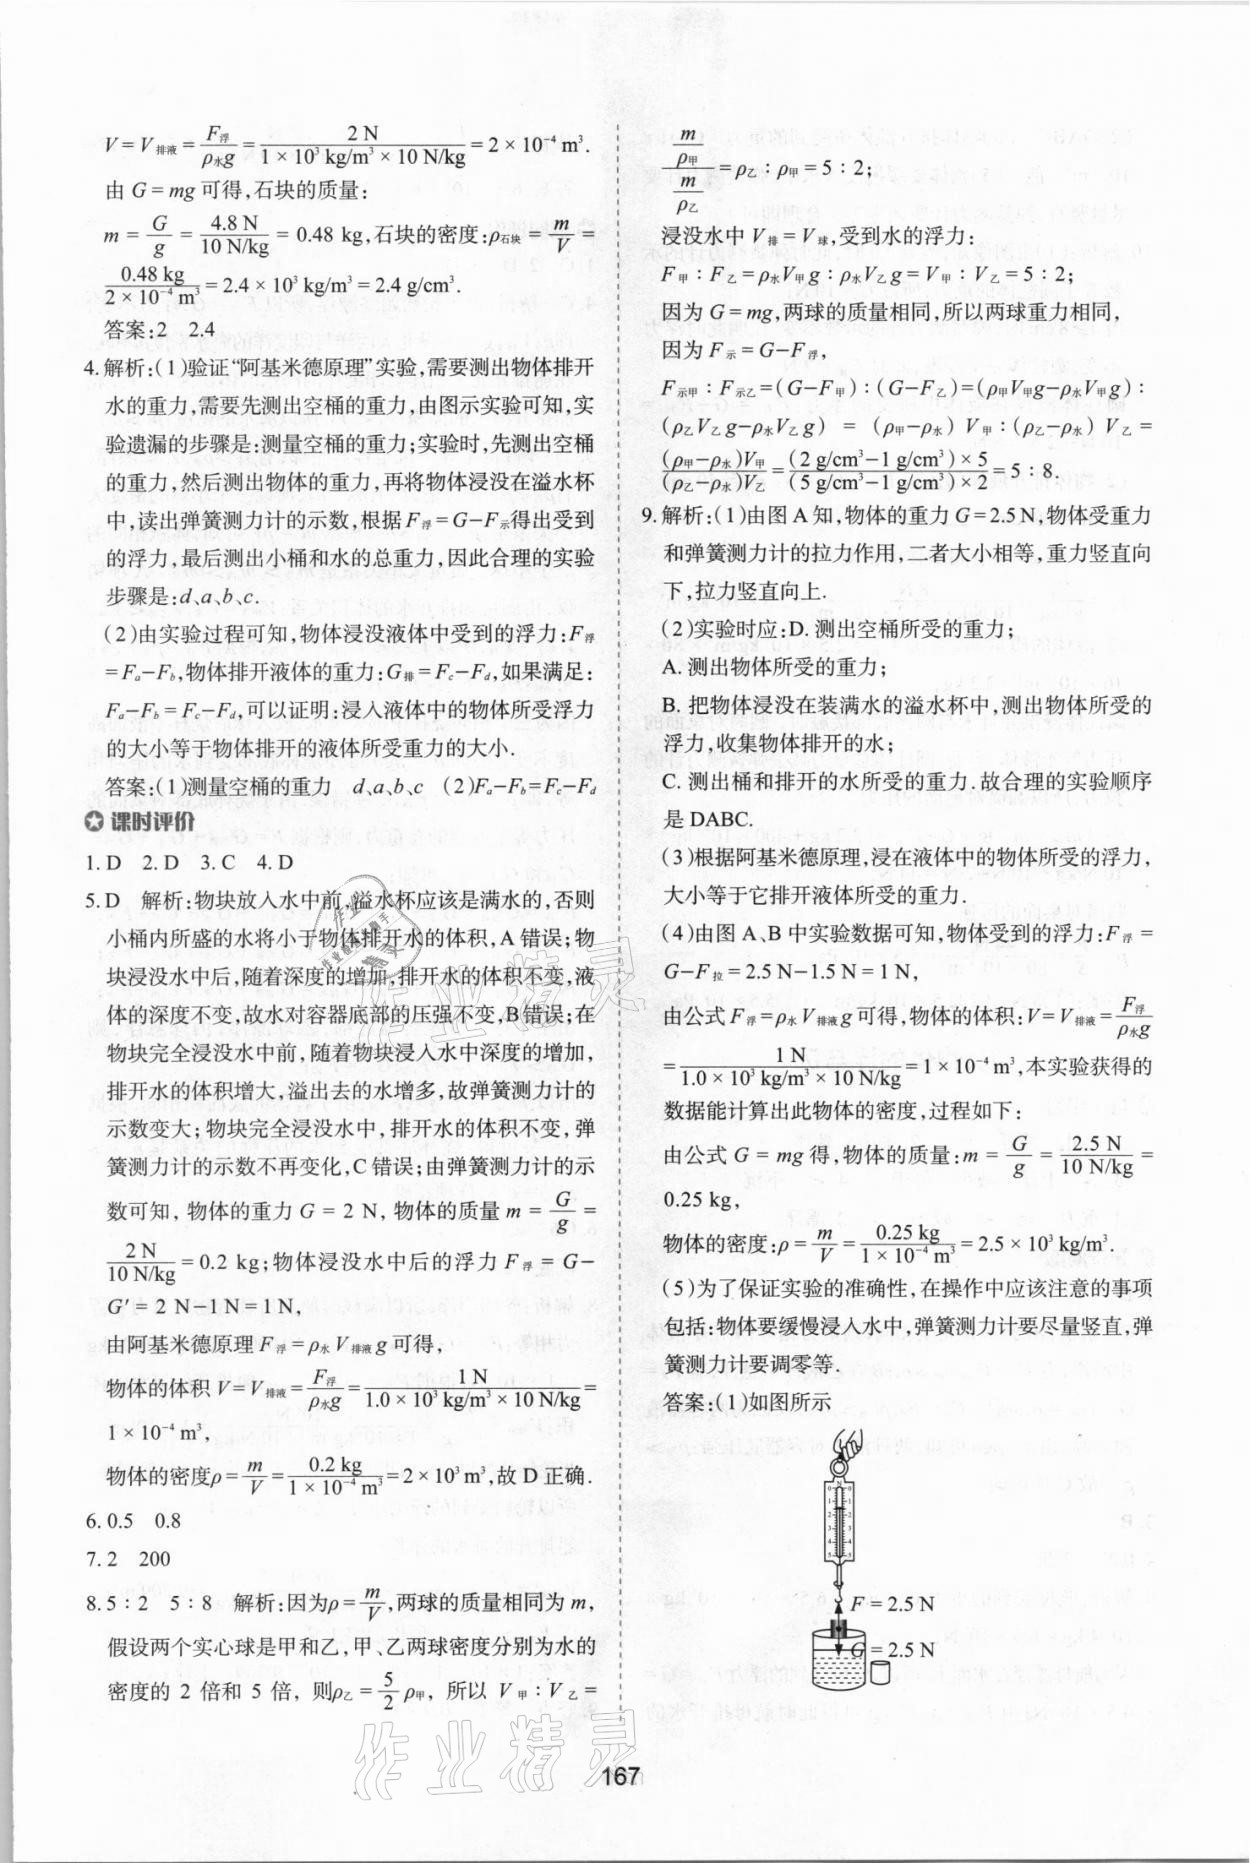 V = V排液 = F浮/ρ水g = 2 N/(1 × 10³ kg/m³ × 10 N/kg) = 2 × 10⁻⁴ m³.
由 G = mg 可得,石块的质量:
m = G/g = 4.8 N/(10 N/kg) = 0.48 kg,石块的密度:ρ石块 = m/V =
0.48 kg/(2 × 10⁻⁴ m³) = 2.4 × 10³ kg/m³ = 2.4 g/cm³.
答案:2 2.4
4. 解析:(1)验证“阿基米德原理”实验,需要测出物体排开
水的重力,需要先测出空桶的重力,由图示实验可知,实
验遗漏的步骤是:测量空桶的重力;实验时,先测出空桶
的重力,然后测出物体的重力,再将物体浸没在溢水杯
中,读出弹簧测力计的示数,根据 F浮=G-F示得出受到
的浮力,最后测出小桶和水的总重力,因此合理的实验
步骤是:d、a、b、c.
(2)由实验过程可知,物体浸没液体中受到的浮力:F浮
=Fa-Fb,物体排开液体的重力:G排=Fc-Fd,如果满足:
Fa-Fb=Fc-Fd,可以证明;浸入液体中的物体所受浮力
的大小等于物体排开的液体所受重力的大小.
答案:(1)测量空桶的重力 d、a、b、c (2)Fa-Fb=Fc-Fd
课时评价
1. D 2. D 3. C 4. D
5. D 解析:物块放入水中前,溢水杯应该是满水的,否则
小桶内所盛的水将小于物体排开水的体积,A 错误;物
块浸没水中后,随着深度的增加,排开水的体积不变,液
体的深度不变,故水对容器底部的压强不变,B 错误;在
物块完全浸没水中前,随着物块浸入水中深度的增加,
排开水的体积增大,溢出去的水增多,故弹簧测力计的
示数变大;物块完全浸没水中,排开水的体积不变,弹
簧测力计的示数不再变化,C 错误;由弹簧测力计的示
数可知,物体的重力 G = 2 N,物体的质量 m = G/g =
2 N/(10 N/kg) = 0.2 kg;物体浸没水中后的浮力 F浮 = G-
G′ = 2 N-1 N = 1 N,
由阿基米德原理 F浮 = ρ水 V排液 g 可得,
物体的体积 V = V排液 = F浮/ρ水g = 1 N/(1.0 × 10³ kg/m³ × 10 N/kg) =
1 × 10⁻⁴ m³,
物体的密度ρ = m/V = 0.2 kg/(1 × 10⁻⁴ m³) = 2 × 10³ m³,故 D 正确.
6. 0.5 0.8
7. 2 200
8. 5∶2 5∶8 解析:因为ρ = m/V,两球的质量相同为 m,
假设两个实心球是甲和乙,甲、乙两球密度分别为水的
密度的 2 倍和 5 倍,则ρ乙 = 5/2 ρ甲,所以 V甲∶V乙 =
(m/ρ甲)/(m/ρ乙) = ρ乙∶ρ甲 = 5∶2;
浸没水中 V排 = V球,受到水的浮力:
F甲∶F乙 = ρ水V甲g∶ρ水V乙g = V甲∶V乙 = 5∶2;
因为 G = mg,两球的质量相同,所以两球重力相同,
因为 F示 = G-F浮,
F示甲∶F示乙=(G-F甲)∶(G-F乙)=(ρ甲V甲g-ρ水V甲g)∶
(ρ乙V乙g-ρ水V乙g) = (ρ甲-ρ水) V甲∶(ρ乙-ρ水) V乙 =
(ρ甲-ρ水)V甲/(ρ乙-ρ水)V乙 = (2 g/cm³-1 g/cm³) × 5/(5 g/cm³-1 g/cm³) × 2 = 5∶8.
9. 解析:(1)由图 A 知,物体的重力 G=2.5 N,物体受重力
和弹簧测力计的拉力作用,二者大小相等,重力竖直向
下,拉力竖直向上.
(2)实验时应:D. 测出空桶所受的重力;
A. 测出物体所受的重力;
B. 把物体浸没在装满水的溢水杯中,测出物体所受的
浮力,收集物体排开的水;
C. 测出桶和排开的水所受的重力.故合理的实验顺序
是 DABC.
(3)根据阿基米德原理,浸在液体中的物体所受的浮力,
大小等于它排开液体所受的重力.
(4)由图 A、B 中实验数据可知,物体受到的浮力:F浮 =
G-F拉 = 2.5 N-1.5 N = 1 N,
由公式 F浮 = ρ水 V排液 g 可得,物体的体积:V = V排液 = F浮/ρ水g
= 1 N/(1.0 × 10³ kg/m³ × 10 N/kg) = 1 × 10⁻⁴ m³,本实验获得的
数据能计算出此物体的密度,过程如下:
由公式 G = mg 得,物体的质量:m = G/g = 2.5 N/(10 N/kg) =
0.25 kg,
物体的密度:ρ = m/V = 0.25 kg/(1 × 10⁻⁴ m³) = 2.5 × 10³ kg/m³.
(5)为了保证实验的准确性,在操作中应该注意的事项
包括:物体要缓慢浸入水中,弹簧测力计要尽量竖直,弹
簧测力计要调零等.
答案:(1)如图所示
F = 2.5 N
G = 2.5 N
作业精灵
作业精灵
167